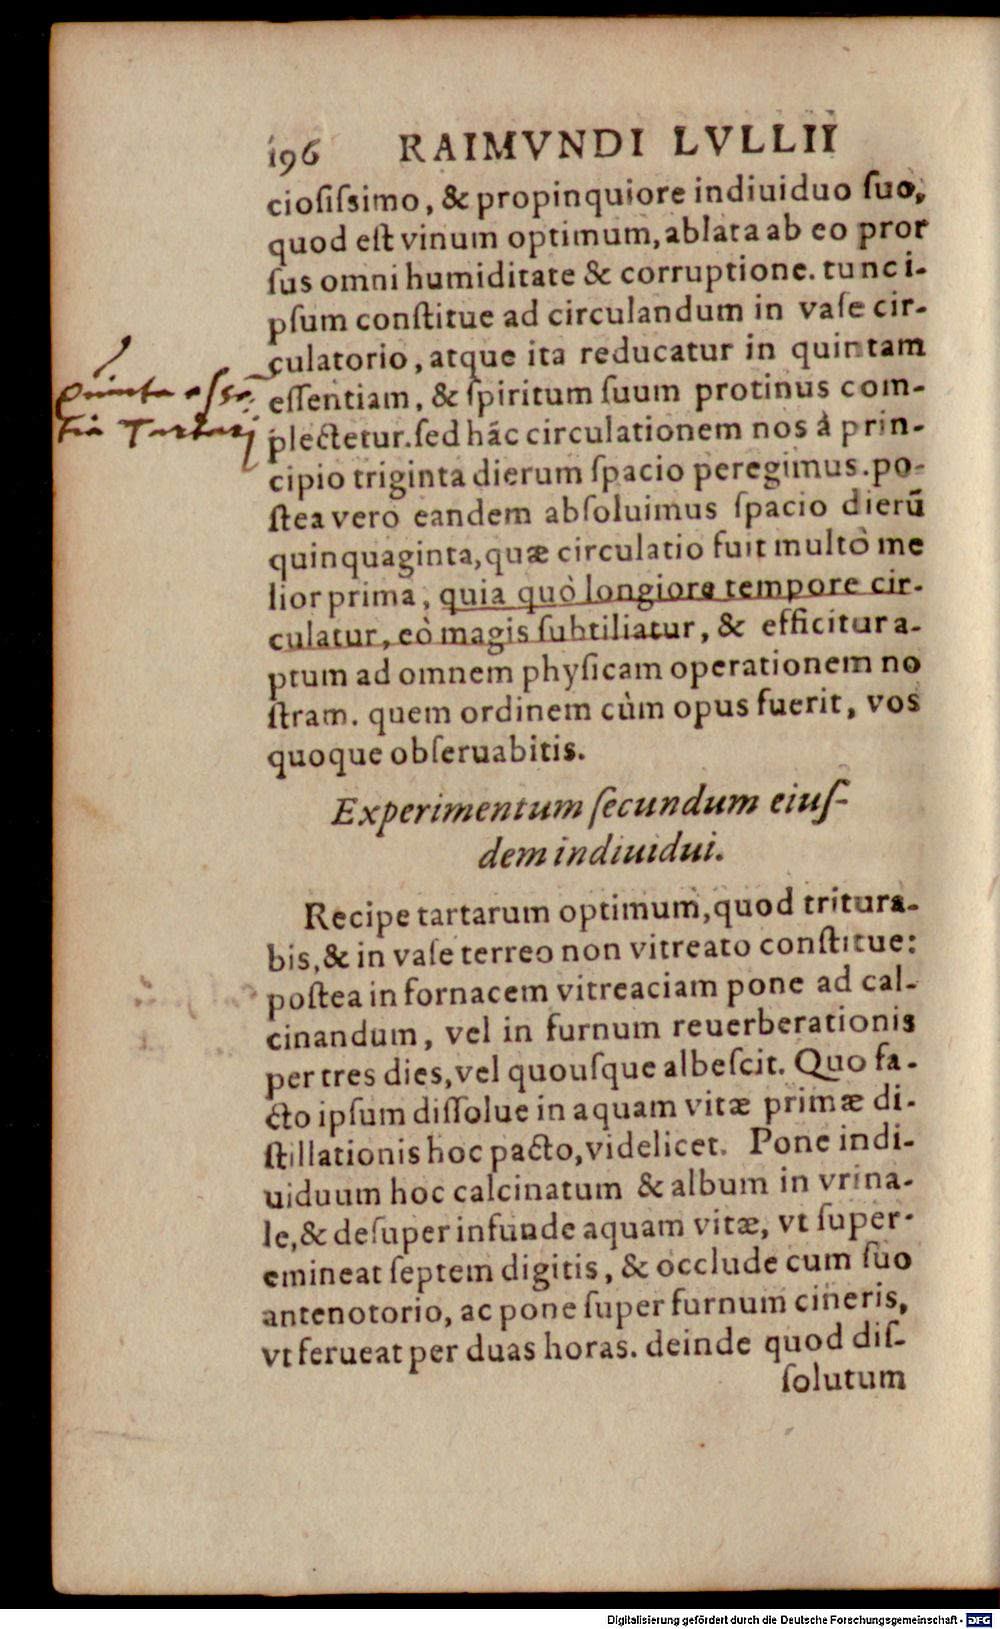 196 RAIMVNDI LVLLII
ciosiſsimo, & propinquiore indiuiduo ſuo,
quod eſt vinum optimum, ablata ab eo pror
ſus omni humiditate & corruptione. tunc i-
pſum conſtitue ad circulandum in vaſe cir-
culatorio, atque ita reducatur in quintam
eſſentiam, & ſpiritum ſuum protinus com-
plectetur. ſed hãc circulationem nos à prin-
cipio triginta dierum ſpacio peregimus. po-
ſtea vero eandem abſoluimus ſpacio dierũ
quinquaginta, quæ circulatio fuit multò me
lior prima, quia quò longiore tempore cir-
culatur, eò magis ſubtiliatur, & efficitur a-
ptum ad omnem phyſicam operationem no
ſtram. quem ordinem cùm opus fuerit, vos
quoque obſeruabitis.
Quinta essen
tia Tartari
Experimentum ſecundum eiuſ-
dem indiuidui.
Recipe tartarum optimum, quod tritura-
bis, & in vaſe terreo non vitreato conſtitue:
poſtea in fornacem vitreaciam pone ad cal-
cinandum, vel in furnum reuerberationis
per tres dies, vel quouſque albeſcit. Quo fa-
cto ipſum diſſolue in aquam vitæ primæ di-
ſtillationis hoc pacto, videlicet. Pone indi-
uiduum hoc calcinatum & album in vrina-
le, & deſuper infunde aquam vitæ, vt ſuper-
emineat ſeptem digitis, & occlude cum ſuo
antenotorio, ac pone ſuper furnum cineris,
vt ferueat per duas horas. deinde quod diſ-
ſolutum
Digitalisierung gefördert durch die Deutsche Forschungsgemeinschaft - DFG